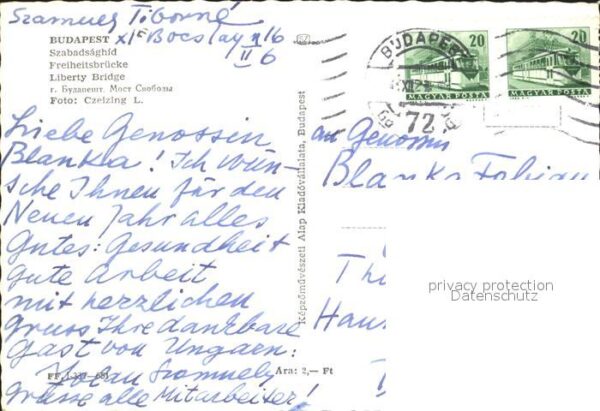 Szamuely Tiborné
BUDAPEST XIe Bocskay u 16
II 6
Szabadsághíd
Freiheitsbrücke
Liberty Bridge
г. Будапешт. Мост Свободы
Foto: Czeizing L.
Liebe Genossin
Blanka! Ich wün-
sche Ihnen für den
Neuen Jahr alles
Gutes: Gesundheit
Gute Arbeit
mit herzlichen
Gruss Ihre dankbare
Gast von Ungarn:
Szamuely
Grüsse alle Mitarbeiter!
Ára: 2,— Ft
Képzőművészeti Alap Kiadóvállalata, Budapest
BUDAPEST
72
20
MAGYAR POSTA
20
MAGYAR POSTA
an Genossin
Blanka Fabian
Th
Haus
privacy protection
Datenschutz